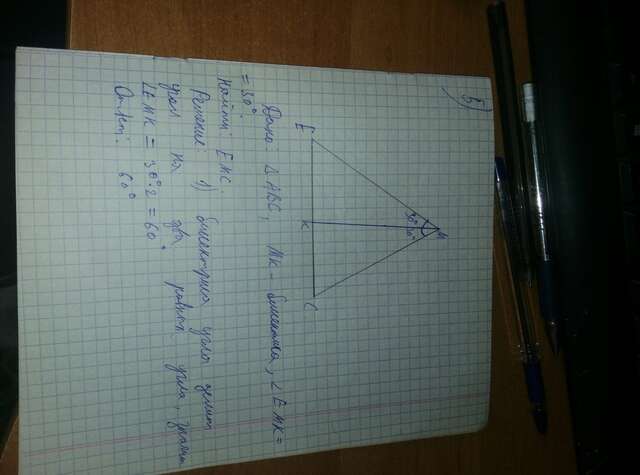 5)
M
30° 30°
E K C
Дано: △ABC, MK - биссектриса, ∠EMK =
= 30°
Найти: EMC.
Решение: 1) биссектриса углы делит
угол на два равных угла, значит
∠EMK = 30°·2 = 60°
Ответ: 60°